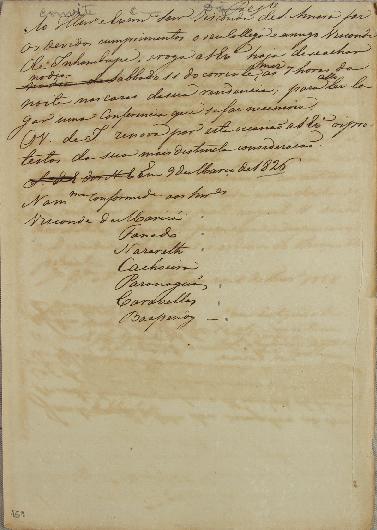 Convite
Ao Illmo e Exmo Snr Visconde de S. Amaro faz
os devidos cumprimentos o seu collega e amigo Visconde
de Inhambupe, e roga a V Ex haja de se achar
no dia
Sabbado 11 do corrente, as 7 horas da
noite nas casas da sua residencia, para ter lo-
gar uma Conferencia que se faz necessaria.
O V. de I. renova por esta occasião a V Ex os pro-
testos da sua mais distincta consideração.
Em 9 de Março de 1826
Na mma conformidade aos Snres
Visconde de Maricá
Fanado
Nazareth
Cachoeira
Paranaguá
Caravellas
Baependy
169